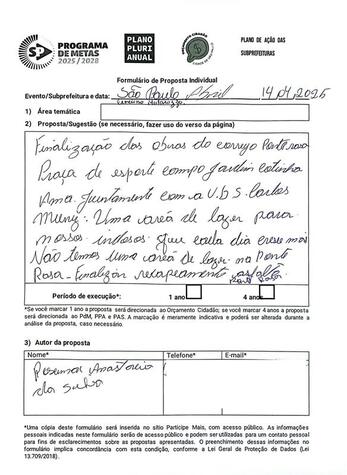 PROGRAMA
DE METAS
2025 / 2028
PLANO
PLURI
ANUAL
PLANO DE AÇÃO DAS
SUBPREFEITURAS
Formulário de Proposta Individual
Evento/Subprefeitura e data: São Paulo Abril 14 04 2025
1) Área temática
2) Proposta/Sugestão (se necessário, fazer uso do verso da página)
Finalização das obras do correjo Ponte rasa
Praça de esporte campo Jardim cotinha
Ama. Juntamente com a U.B.S. Carlos
Muniz. Uma varéa de lazer para
nossos indosos que cada dia crese mais
Não temos uma varéa de lazer na Ponte
Rasa - Finalizar recapeamento asfalto
Período de execução*: 1 ano 4 anos
*Se você marcar 1 ano a proposta será direcionada ao Orçamento Cidadão; se você marcar 4 anos a proposta
será direcionada ao PdM, PPA e PAS. A marcação é meramente indicativa e poderá ser alterada durante a
análise da proposta, caso necessário.
3) Autor da proposta
Nome* Telefone* E-mail*
Rosemar Anastacio
da Silva
*Uma cópia deste formulário será inserida no sítio Participe Mais, com acesso público. As informações
pessoais indicadas neste formulário serão de acesso público e podem ser utilizadas para um contato pessoal
para fins de esclarecimentos sobre as propostas apresentadas. O preenchimento dessas informações no
formulário implica concordância com esta condição, conforme a Lei Geral de Proteção de Dados (Lei
13.709/2018).